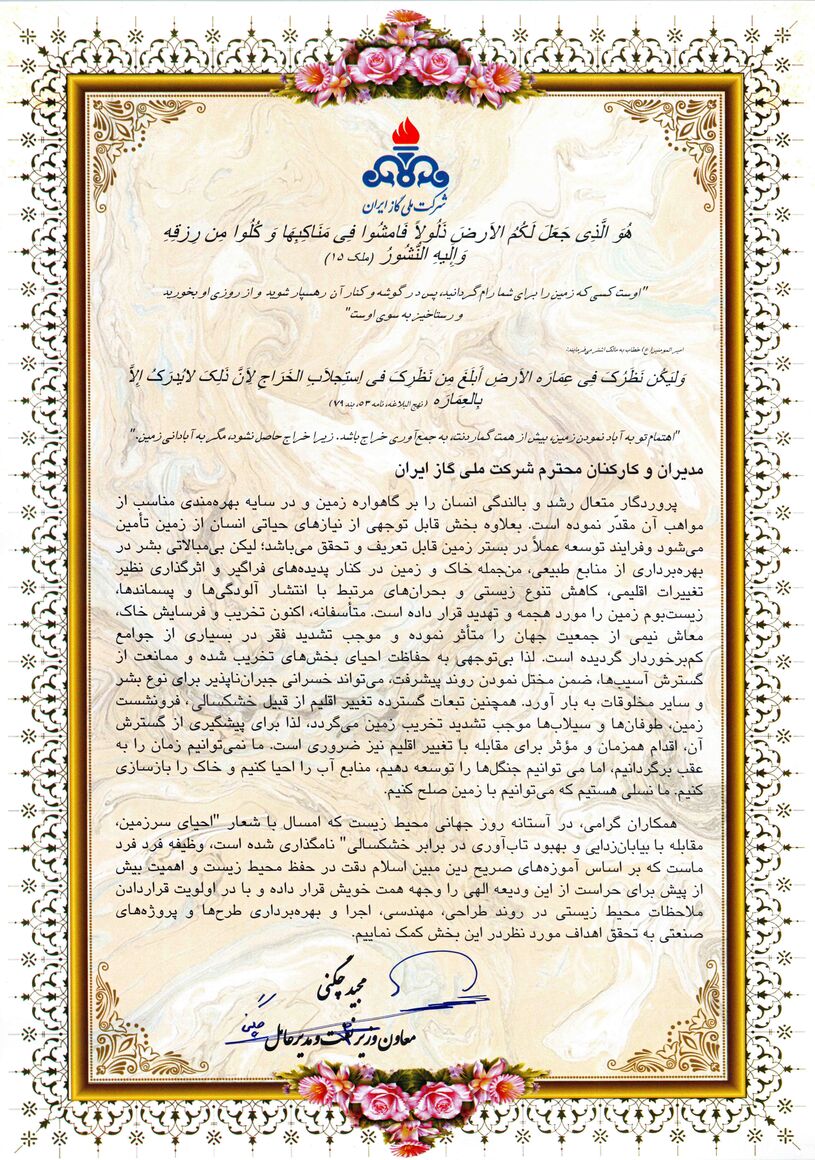 شرکت ملی گاز ایران
هُوَ الَّذِی جَعَلَ لَکُمُ الاَرضَ ذَلُولاً فَامشُوا فِی مَنَاکِبِهَا وَ کُلُوا مِن رِزقِهِ
وَإِلَیهِ النُّشُورُ (ملک ۱۵)
"اوست کسی که زمین را برای شما رام گردانید، پس در گوشه و کنار آن رهسپار شوید و از روزی او بخورید
و رستاخیز به سوی اوست"
امیر المومنین(ع) خطاب به مالک اشتر می‌فرمایند:
وَلیَکُن نَظَرُکَ فِی عِمَارَه الاَرضِ أَبلَغَ مِن نَظَرِکَ فِی اِستِجلاَبِ الخَرَاجِ لِأَنَّ ذَلِکَ لایُدرَکُ إِلاَّ
بِالعِمَارَه (نهج البلاغه، نامه ۵۳، بند ۷۹)
"اهتمام تو به آباد نمودن زمین، بیش از همت گماردنت، به جمع‌آوری خراج باشد. زیرا خراج حاصل نشود، مگر به آبادانی زمین."
مدیران و کارکنان محترم شرکت ملی گاز ایران
پروردگار متعال رشد و بالندگی انسان را بر گاهواره زمین و در سایه بهره‌مندی مناسب از
مواهب آن مقدّر نموده است. بعلاوه بخش قابل توجهی از نیازهای حیاتی انسان از زمین تأمین
می‌شود وفرایند توسعه عملاً در بستر زمین قابل تعریف و تحقق می‌باشد؛ لیکن بی‌مبالاتی بشر در
بهره‌برداری از منابع طبیعی، من‌جمله خاک و زمین در کنار پدیده‌های فراگیر و اثرگذاری نظیر
تغییرات اقلیمی، کاهش تنوع زیستی و بحران‌های مرتبط با انتشار آلودگی‌ها و پسماندها،
زیست‌بوم زمین را مورد هجمه و تهدید قرار داده است. متأسفانه، اکنون تخریب و فرسایش خاک،
معاش نیمی از جمعیت جهان را متأثر نموده و موجب تشدید فقر در بسیاری از جوامع
کم‌برخوردار گردیده است. لذا بی‌توجهی به حفاظت احیای بخش‌های تخریب شده و ممانعت از
گسترش آسیب‌ها، ضمن مختل نمودن روند پیشرفت، می‌تواند خسرانی جبران‌ناپذیر برای نوع بشر
و سایر مخلوقات به بار آورد. همچنین تبعات گسترده تغییر اقلیم از قبیل خشکسالی، فرونشست
زمین، طوفان‌ها و سیلاب‌ها موجب تشدید تخریب زمین می‌گردد، لذا برای پیشگیری از گسترش
آن، اقدام همزمان و مؤثر برای مقابله با تغییر اقلیم نیز ضروری است. ما نمی‌توانیم زمان را به
عقب برگردانیم، اما می توانیم جنگل‌ها را توسعه دهیم، منابع آب را احیا کنیم و خاک را بازسازی
کنیم. ما نسلی هستیم که می‌توانیم با زمین صلح کنیم.
همکاران گرامی، در آستانه روز جهانی محیط زیست که امسال با شعار "احیای سرزمین،
مقابله با بیابان‌زدایی و بهبود تاب‌آوری در برابر خشکسالی" نامگذاری شده است، وظیفه فرد فرد
ماست که بر اساس آموزه‌های صریح دین مبین اسلام دقت در حفظ محیط زیست و اهمیت بیش
از پیش برای حراست از این ودیعه الهی را وجهه همت خویش قرار داده و با در اولویت قراردادن
ملاحظات محیط زیستی در روند طراحی، مهندسی، اجرا و بهره‌برداری طرح‌ها و پروژه‌های
صنعتی به تحقق اهداف مورد نظردر این بخش کمک نماییم.
مجید چگنی
معاون وزیر نفت و مدیرعامل